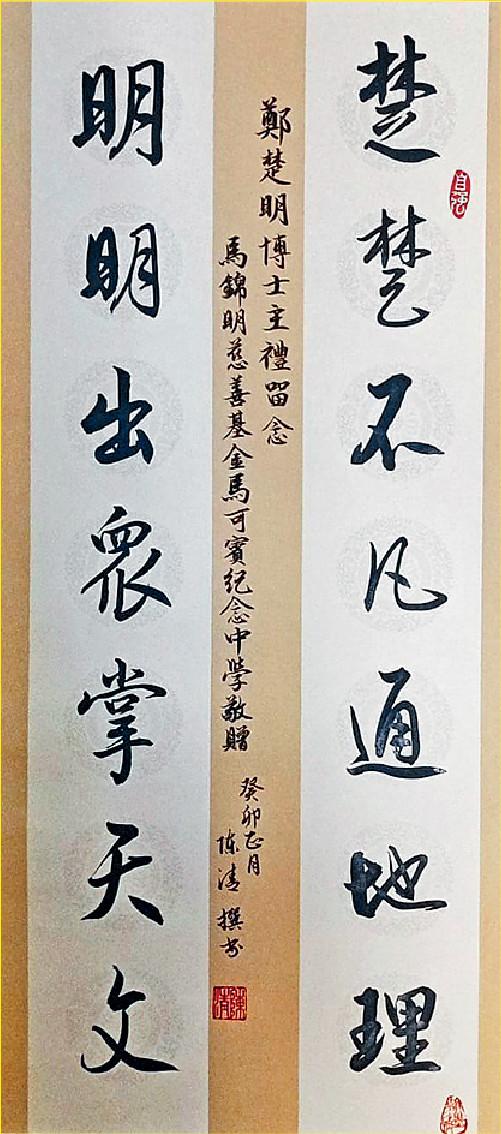 楚楚不凡通地理
自強
鄭楚明博士主禮留念
馬錦明慈善基金馬可賓紀念中學敬贈
癸卯正月
陈清撰书
明明出衆掌天文